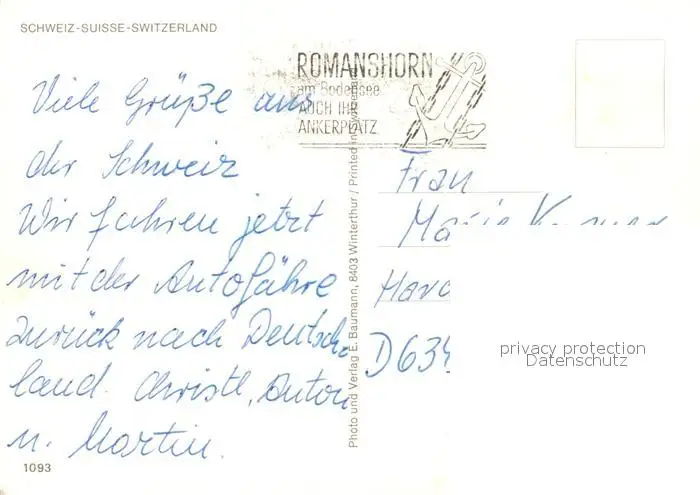 SCHWEIZ-SUISSE-SWITZERLAND
ROMANSHORN
am Bodensee
AUCH IHR
ANKERPLATZ
Viele Grüße aus
der Schweiz
Wir fahren jetzt
mit der Autofähre
zurück nach Deutsch
land. Christl, Anton
u. Martin.
1093
Photo und Verlag E. Baumann, 8403 Winterthur / Printed in
Frau
D 634
privacy protection
Datenschutz